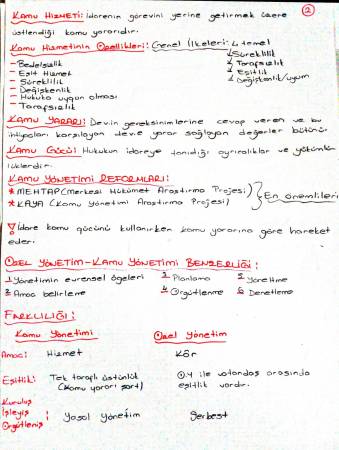 2
KAMU HİZMETİ: İdarenin görevini yerine getirmek üzere
üstlendiği kamu yararıdır.
Kamu Hizmetinin Özellikleri: Genel İlkeleri: 4 temel
- Bedelsizlik
- Eşit Hizmet
- Süreklilik
- Değişkenlik
- Hukuka uygun olması
- Tarafsızlık
Süreklilik
Tarafsızlık
Eşitlik
Değişkenlik/uyum
KAMU YARARI: Dev.in gereksinimlerine cevap veren ve bu
ihtiyaçları karşılayan dev.e yarar sağlayan değerler bütünür
KAMU GÜCÜ: Hukukun idareye tanıdığı ayrıcalıklar ve yükümlü
lüklerdir.
KAMU YÖNETİMİ REFORMLARI:
* MEHTAP (Merkezi Hükümet Araştırma Projesi)
* KAYA (Kamu Yönetimi Araştırma Projesi)
En önemlileri
İdare kamu gücünü kullanırken kamu yararına göre hareket
eder.
ÖZEL YÖNETİM-KAMU YÖNETİMİ BENZERLİĞİ:
1 Yönetimin evrensel ögeleri 3 Planlama 5 Yöneltme
2 Amaç belirleme 4 Örgütlenme 6 Denetleme
FARKLILIĞI:
Kamu Yönetimi Özel Yönetim
Amacı: Hizmet Kâr
Eşitlik: Tek taraflı üstünlük Ö.Y ile vatandaş arasında
(Kamu yararı şart) eşitlik vardır.
Kuruluş
İşleyiş : Yasal Yönetim Serbest
Örgütleniş